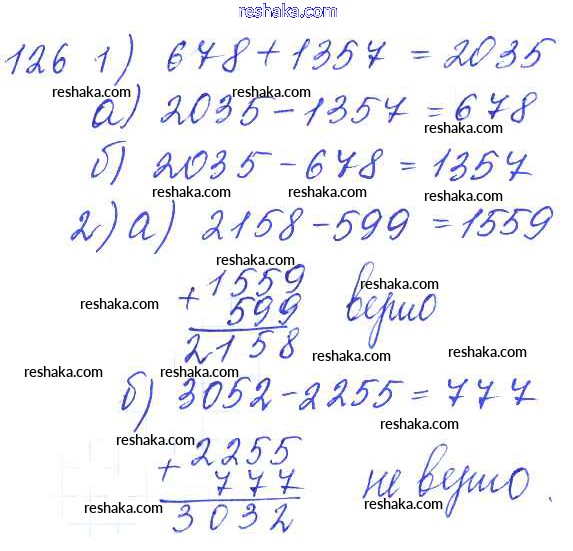 reshaka.com
126 1) 678 + 1357 = 2035
reshaka.com reshaka.com
а) 2035 - 1357 = 678
reshaka.com
б) 2035 - 678 = 1357
reshaka.com reshaka.com reshaka.com
2) а) 2158 - 599 = 1559
reshaka.com
+ 1559
reshaka.com
599 верно
reshaka.com
2158
reshaka.com reshaka.com
reshaka.com reshaka.com
б) 3052 - 2255 = 777
reshaka.com reshaka.com
+ 2255
reshaka.com
777 не верно.
reshaka.com reshaka.com
3032